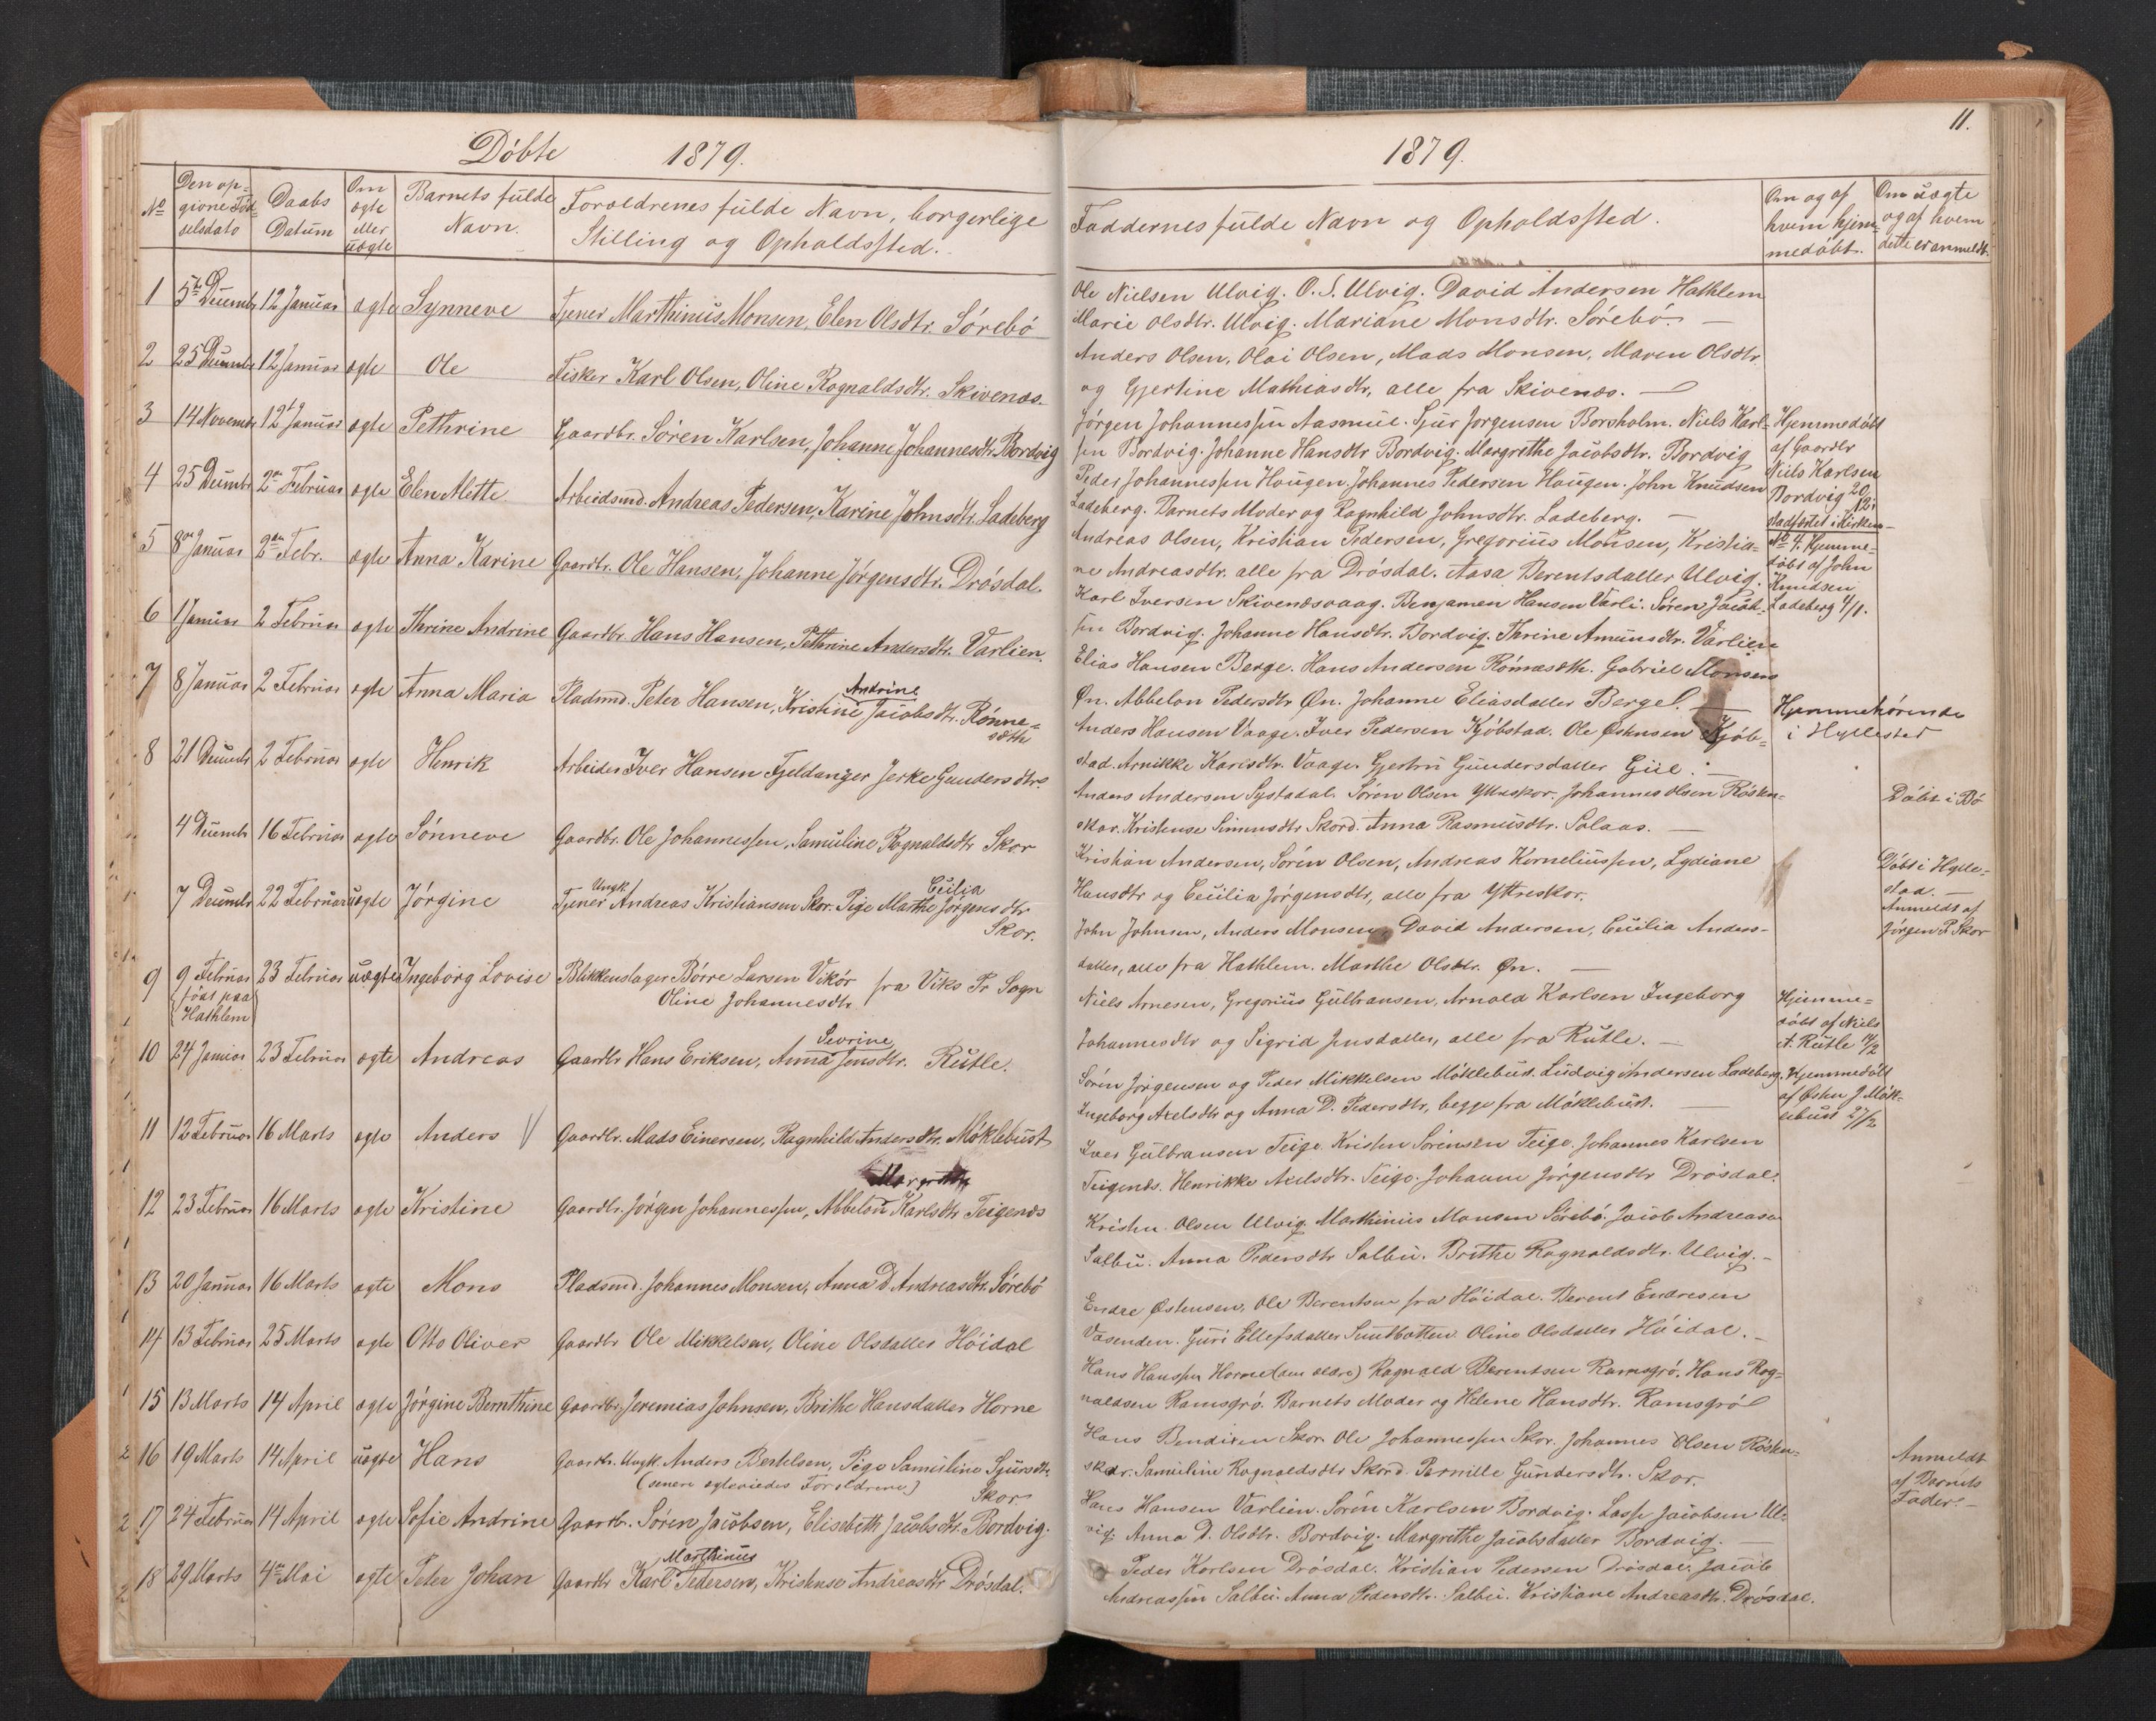 Döbte 1879.
No
Den op-
givne Föd-
selsdato
Daabs
Datum
Om
ægte
eller
uægte
Barnets fulde
Navn.
Forældrenes fulde Navn, borgerlige
Stilling og Opholdssted.
1 5te Decembr 12 Januar ægte Synneve Tjener Marthinus Monsen, Elen Olsdtr. Sörebö
2 25 Decembr 12 Januar ægte Ole Fisker Karl Olsen, Oline Rognaldsdtr. Skivenæs.
3 14 Novembr 12te Januar ægte Pethrine Gaardbr. Sören Karlsen, Johanne Johannesdtr. Bordvig
4 25 Decembr 2den Februar ægte Elen Alette Arbeidsmd. Andreas Pedersen, Karine Johnsdtr. Ladeberg
5 8de Januar 2den Febr. ægte Anna Karine Gaardbr. Ole Hansen, Johanne Jörgensdtr. Drösdal.
6 1 Januar 2 Februar ægte Thrine Andrine Gaardbr. Hans Hansen, Pethrine Andersdtr. Varlien.
7 8 Januar 2 Februar ægte Anna Maria Pladsmd. Peter Hansen, Kristine Andrine Jacobsdtr. Rönne-
sæth
8 21 Decembr 2 Februar ægte Henrik Arbeider Iver Hansen Fjeldanger Jerke Gundersdtr.
4 Decembr 16 Februar ægte Sönneve Gaardbr. Ole Johannessen, Samuline Rognaldsdtr Skor
7 Decembr 22 Februar uægte Jörgine Tjener Ungk. Andreas Kristiansen Skor. Pige Marthe Cecilia Jörgensdtr
Skor.
9 9 Februar 23 Februar uægte Ingeborg Lovise Blikkenslager Börre Larsen Vikör fra Viks Pr Sogn
född paa
Hathlem
Oline Johannesdtr
10 24 Januar 23 Februar ægte Andreas Gaardbr Hans Eriksen, Anna Sevrine Jensdtr. Rutle.
11 12 Februar 16 Marts ægte Anders Gaardbr. Mads Einersen, Ragnhild Andersdtr. Möklebust
Margrethe
12 23 Februar 16 Marts ægte Kristine Gaardbr. Jörgen Johannessen, Abbelon Karlsdtr Teigenæs
13 20 Januar 16 Marts ægte Mons Pladsmd. Johannes Monsen, Anna D. Andreasdtr. Sörebö
14 13 Februar 25 Marts ægte Otto Oliver Gaardbr Ole Mikkelsen, Oline Olsdatter Höidal
15 13 Marts 14 April ægte Jörgine Bernthine Gaardbr. Jeremias Johnsen, Brithe Hansdatter Horne
16 19 Marts 14 April uægte Hans Gaardbr. Ungk. Anders Bertelsen, Pige Samuline Sjursdtr.
(senere ægteviedes Forældrene) Skor
17 24 Februar 14 April ægte Sofie Andrine Gaardbr. Sören Jacobsen, Elisebeth Jacobsdtr. Bordvig.
18 29 Marts 4de Mai ægte Peter Johan Gaardbr Karl Marthinus Pedersen, Kristense Andreasdtr Drösdal.
11.
1879.
Faddernes fulde Navn og Opholdssted.
Om og af
hvem hjem-
medöbt.
Om uægte
og af hvem
dette er anmeldt.
Ole Nielsen Ulvig. O. S. Ulvig. David Andersen Hathlem
Marie Olsdtr. Ulvig. Mariane Monsdtr. Sörebö. —
Anders Olsen, Olai Olsen, Mads Monsen, Maren Olsdtr
og Gjertine Mathiasdtr, alle fra Skivenæs. —
Jörgen Johannessen Aasmul. Sjur Jorgensen Borsholm. Niels Karl-
sen Bordvig. Johanne Hansdtr Bordvig. Margrethe Jacobsdtr. Bordvig
Hjemmedöbt
af Gaardbr
Niels Karlsen
Bordvig 20/12
stadfæstet i Kirken
Peder Johannessen Haugen. Johannes Pedersen Haugen. John Knudsen
Ladeberg. Barnets Moder og Ragnhild Johnsdtr. Ladeberg. —
No 4. Hjemme-
döbt af John
Knudsen
Ladeberg 4/1.
Andreas Olsen, Kristian Pedersen, Gregorius Monsen, Kristia-
ne Andreasdtr. alle fra Drösdal. Aasa Berentsdatter Ulvig.
Karl Iversen Skivenæsvaag. Benjamen Hansen Varli. Sören Jacob-
sen Bordvig. Johanne Hansdtr. Bordvig. Thrine Amunsdtr. Varlien
Elias Hansen Berge. Hans Andersen Römæsdth. Gabriel Monsen
Øn. Abbelon Pedersdtr Øn. Johanne Eliasdatter Berge. —
Hjemmehörende
i Hyllestad
Anders Hansen Vaage. Iver Pedersen Kjöbstad. Ole Østensen Kjöb-
stad. Arnikke Karlsdtr. Vaage. Gjertru Gundersdatter Gul. —
Anders Andersen Systadal. Sören Olsen Yttreskor. Johannes Olsen Rösten-
skor. Kristense Simensdtr Skord. Anna Rasmusdtr. Solaas. —
Döbt i Bö
Kristian Andersen, Sören Olsen, Andreas Korneliussen, Lydiane
Hansdtr og Cecilia Jörgensdtr, alle fra Yttreskor.
Döbt i Hylle-
stad. —
Anmeldt af
Jörgen P. Skor
John Johnsen, Anders Monsen, David Andersen, Cecilia Anders-
datter, alle fra Hathlem. Marthe Olsdtr. Øn. —
Niels Arnesen, Gregorius Gulbransen, Arnold Karlsen Ingeborg
Johannesdtr og Sigrid Jensdatter, alle fra Rutle. —
Hjemme-
döbt af Niels
A. Rutle 14/2
Sören Jörgensen og Peder Mikkelsen Möklebust. Ludvig Andersen Ladeberg.
Ingeborg Axelsdtr og Anna D. Pedersdtr, begge fra Möklebust. —
Hjemmedöbt
af Østen J. Mök-
lebust 27/2
Iver Gulbransen Teige. Kristen Sörensen Teige. Johannes Karlsen
Teigenæs. Henrikke Axelsdtr. Teige. Johanne Jörgensdtr Drösdal.
Kristen Olsen Ulvig. Marthinius Monsen Sörebö. Jacob Andreasen
Salbu. Anna Pedersdtr Salbu. Brithe Rognaldsdtr. Ulvig. —
Endre Østensen, Ole Berentsen fra Höidal. Berent Endresen
Vasenden. Guri Ellefsdatter Smutbotten. Oline Olsdatter Höidal. —
Hans Hansen Horne (den ældre) Ragnald Berentsen Ramsgrö. Hans Rag-
naldsen Ramsgrö. Barnets Moder og Helene Hansdtr. Ramsgrö
Hans Bendixen Skor. Ole Johannessen Skor. Johannes Olsen Rösten-
skor. Samuline Rognaldsdtr Skord. Pernille Gundersdtr. Skor.
Anmeldt
af Barnets
Fader. —
Hans Hansen Varlien. Sören Karlsen Bordvig. Lasse Jacobsen Ul-
vig. Anna D. Olsdtr. Bordvig. Margrethe Jacobsdatter Bordvig. —
Peder Karlsen Drösdal. Kristian Pedersen Drösdal. Jacob
Andreassen Salbu. Anna Pedersdtr. Salbu. Kristiane Andreasdtr. Drösdal.